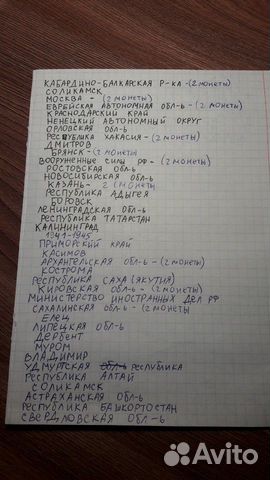 КАБАРДИНО-БАЛКАРСКАЯ Р-КА -(2 МОНЕТЫ)
СОЛИКАМСК
МОСКВА - (2 МОНЕТЫ)
ЕВРЕЙСКАЯ АВТОНОМНАЯ ОБЛ-Ь -(2 МОНЕТЫ)
КРАСНОДАРСКИЙ КРАЙ
НЕНЕЦКИЙ АВТОНОМНЫЙ ОКРУГ
ОРЛОВСКАЯ ОБЛ-Ь
РЕСПУБЛИКА ХАКАСИЯ -(2 МОНЕТЫ)
ДМИТРОВ
БРЯНСК -(2 МОНЕТЫ)
ВООРУЖЕННЫЕ СИЛЫ РФ -(2 МОНЕТЫ)
РОСТОВСКАЯ ОБЛ-Ь
НОВОСИБИРСКАЯ ОБЛ-Ь
КАЗАНЬ - 2 (МОНЕТЫ
РЕСПУБЛИКА АДЫГЕЯ
БОРОВСК
ЛЕНИНГРАДСКАЯ ОБЛ-Ь
РЕСПУБЛИКА ТАТАРСТАН
КАЛИНИНГРАД
1941-1945
ПРИМОРСКИЙ КРАЙ
КАСИМОВ
АРХАНГЕЛЬСКАЯ ОБЛ-Ь -(2 МОНЕТЫ)
КОСТРОМА
РЕСПУБЛИКА САХА (ЯКУТИЯ)
КИРОВСКАЯ ОБЛ-Ь -(2 МОНЕТЫ)
МИНИСТЕРСТВО ИНОСТРАННЫХ ДЕЛ РФ
САХАЛИНСКАЯ ОБЛ-Ь -(2 МОНЕТЫ
ЕЛЕЦ
ЛИПЕЦКАЯ ОБЛ-Ь
ДЕРБЕНТ
МУРОМ
ВЛАДИМИР
УДМУРТСКАЯ ОБЛ-Ь РЕСПУБЛИКА
РЕСПУБЛИКА АЛТАЙ
СОЛИКАМСК
АСТРАХАНСКАЯ ОБЛ-Ь
РЕСПУБЛИКА БАШКОРТОСТАН
СВЕРДЛОВСКАЯ ОБЛ-Ь
Avito